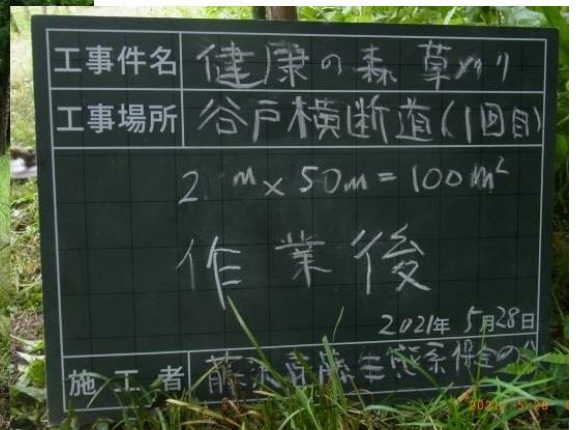 工事件名 健康の森 草刈り
工事場所 谷戸横断道(1回目)
2 m×50m=100m²
作業後
2021年 5月28日
施工者 藤沢 生態系保全の